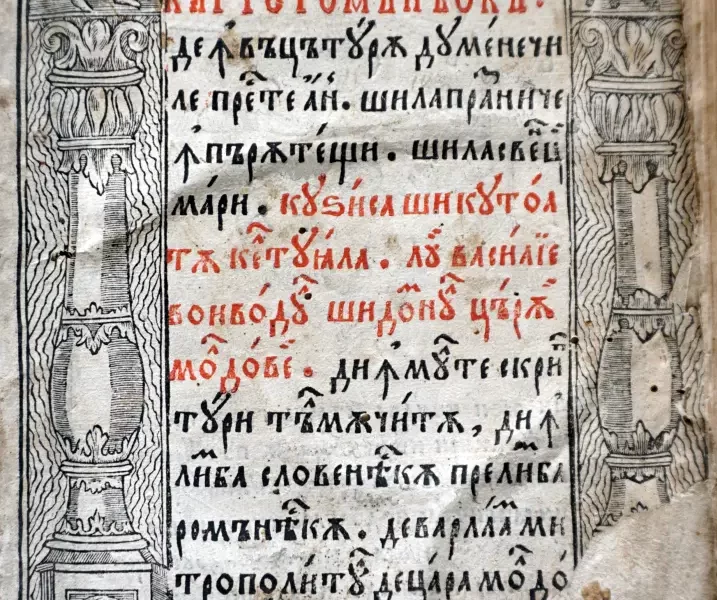 КАРТЕ РОМЪНѢСКЪ·
де ꙟвъцътꙋ́рѫ дꙋме́нечи
ле прⷭ҇те а́н҃. шилапра́ꙁниче
ꙟпърѫте́щи. шиласве́нцⷮ
ма́ри. кꙋѕи́са шикꙋто́а
тѫ келтꙋꙗ́ла. лꙋй васи́лїе
вои́во́дꙋл шидо́мнꙋл цъ́рѫй
молдо́вей. дин мꙋ́лте скрип
тꙋ́ри тълмѫчи́тѫ, дин
ли́мба словенѣ́скѫ прели́мба
ромънѣ́скѫ. деварлаа́м ми
трополи́тꙋл деца́ра молдо́